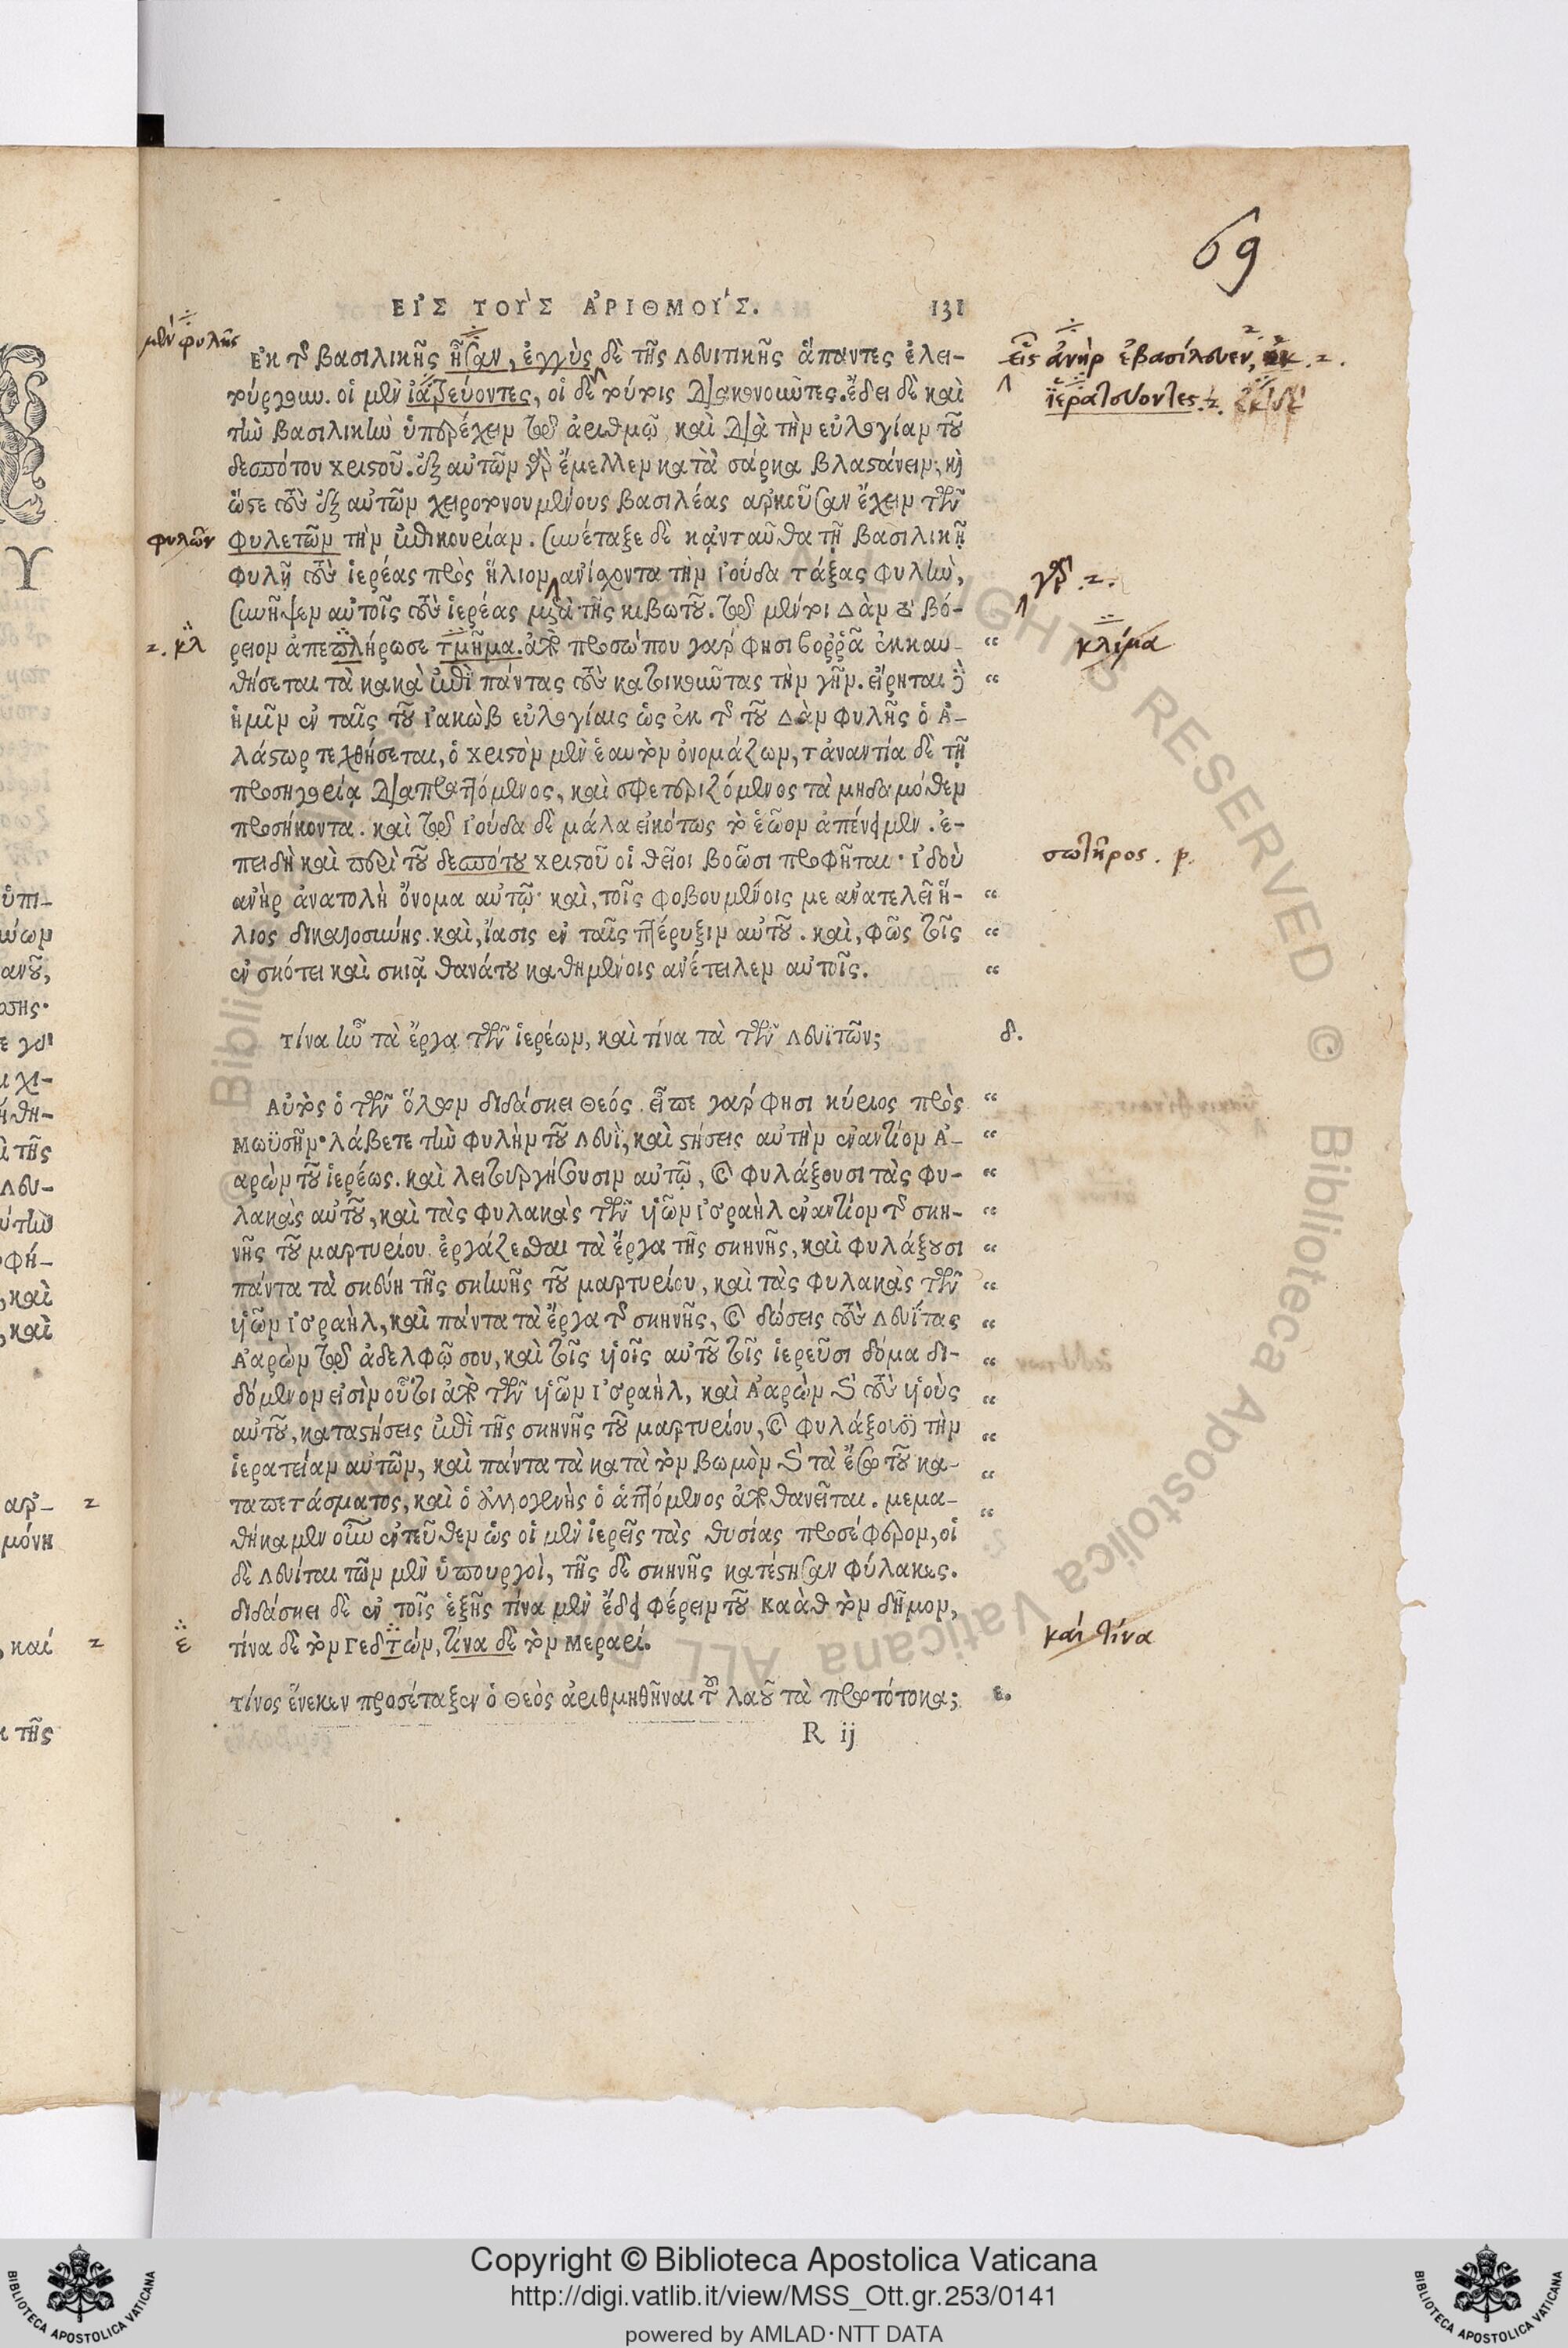 69
ΕἸΣ ΤΟῪΣ ἈΡΙΘΜΟΥΎΣ.
131
μὲν φυλῆς
Ἐκ τῆς βασιλικῆς ἦσαν, ἐγγὺς δὲ τῆς λευιτικῆς ἅπαντες ἐλει-
εἷς ἀνὴρ ἐβασίλευεν, ἐκ .2.
τούργουν. οἱ μὲν ἱερεύοντες, οἱ δὲ τούτοις διακονοῦντες. ἔδει δὲ καὶ
ἱερατεύοντες. 2.
τὴν βασιλικὴν ὑπερέχειν τῷ ἀριθμῷ, καὶ διὰ τὴν εὐλογίαν τοῦ
δεσπότου χριστοῦ. ἐξ αὐτῶν γὰρ ἔμελλεν κατὰ σάρκα βλαστάνειν, καὶ
ὥστε τοὺς ἐξ αὐτῶν χειροτονουμένους βασιλέας ἀρκοῦσαν ἔχειν τῶν
φυλῶν
φυλετῶν τὴν ἐπικουρίαν. συνέταξε δὲ κἀνταῦθα τῇ βασιλικῇ
φυλῇ τοὺς ἱερέας πρὸς ἥλιον ἀνίσχοντα τὴν Ἰούδα τάξας φυλὴν,
γὰρ .2.
συνῆψεν αὐτοῖς τοὺς ἱερέας μετὰ τῆς κιβωτοῦ. τῷ μέντοι Δὰν τὸ βό-
2. κλ
ρειον ἀπεπλήρωσε τμῆμα. ἀπὸ προσώπου γάρ φησι βοῤῥᾶ ἐκκαυ- “
κλίμα
θήσεται τὰ κακὰ ἐπὶ πάντας τοὺς κατοικοῦντας τὴν γῆν. εἴρηται δὲ “
ἡμῖν ἐν ταῖς τοῦ Ἰακὼβ εὐλογίαις ὡς ἐκ τῆς τοῦ Δὰν φυλῆς ὁ Ἀ-
λάστωρ τεχθήσεται, ὁ χριστὸν μὲν ἑαυτὸν ὀνομάζων, τἀναντία δὲ τῇ
προσηγορίᾳ διαπραττόμενος, καὶ σφετεριζόμενος τὰ μηδαμόθεν
προσήκοντα. καὶ τῷ Ἰούδα δὲ μάλα εἰκότως τὸ ἑῷον ἀπένειμεν. ἐ-
πειδὴ καὶ περὶ τοῦ δεσπότου χριστοῦ οἱ θεῖοι βοῶσι προφῆται· Ἰδοὺ
σωτῆρος. p.
ἀνὴρ ἀνατολὴ ὄνομα αὐτῷ· καὶ, τοῖς φοβουμένοις με ἀνατελεῖ ἥ- “
λιος δικαιοσύνης. καὶ, ἴασις ἐν ταῖς πτέρυξιν αὐτοῦ. καὶ, φῶς τοῖς “
ἐν σκότει καὶ σκιᾷ θανάτου καθημένοις ἀνέτειλεν αὐτοῖς. “
Τίνα ἦν τὰ ἔργα τῶν ἱερέων, καὶ τίνα τὰ τῶν Λευϊτῶν; δ.
Αὐτὸς ὁ τῶν ὅλων διδάσκει Θεός. εἶπε γάρ φησι κύριος πρὸς “
Μωϋσῆν· λάβετε τὴν φυλὴν τοῦ Λευὶ, καὶ στήσεις αὐτὴν ἐναντίον Ἀ- “
αρὼν τοῦ ἱερέως. καὶ λειτουργήσουσιν αὐτῷ, καὶ φυλάξουσι τὰς φυ- “
λακὰς αὐτοῦ, καὶ τὰς φυλακὰς τῶν υἱῶν Ἰσραὴλ ἐναντίον τῆς σκη- “
νῆς τοῦ μαρτυρίου ἐργάζεσθαι τὰ ἔργα τῆς σκηνῆς, καὶ φυλάξουσι “
πάντα τὰ σκεύη τῆς σκηνῆς τοῦ μαρτυρίου, καὶ τὰς φυλακὰς τῶν “
υἱῶν Ἰσραὴλ, καὶ πάντα τὰ ἔργα τῆς σκηνῆς, καὶ δώσεις τοὺς Λευΐτας “
Ἀαρὼν τῷ ἀδελφῷ σου, καὶ τοῖς υἱοῖς αὐτοῦ τοῖς ἱερεῦσι δόμα δι- “
δόμενον εἰσὶν οὗτοι ἀπὸ τῶν υἱῶν Ἰσραὴλ, καὶ Ἀαρὼν καὶ τοὺς υἱοὺς “
αὐτοῦ, καταστήσεις ἐπὶ τῆς σκηνῆς τοῦ μαρτυρίου, καὶ φυλάξουσι τὴν “
ἱερατείαν αὐτῶν, καὶ πάντα τὰ κατὰ τὸν βωμὸν καὶ τὰ ἔσω τοῦ κα- “
ταπετάσματος, καὶ ὁ ἀλλογενὴς ὁ ἁπτόμενος ἀποθανεῖται. μεμα- “
θήκαμεν οὖν ἐντεῦθεν ὡς οἱ μὲν ἱερεῖς τὰς θυσίας προσέφερον, οἱ
δὲ Λευίται τῶν μὲν ὑπουργοὶ, τῆς δὲ σκηνῆς κατέστησαν φύλακες.
διδάσκει δὲ ἐν τοῖς ἑξῆς τίνα μὲν ἔδει φέρειν τοῦ Καὰθ τὸν δῆμον,
ε
τίνα δὲ τὸν Γεδτών, τίνα δὲ τὸν Μεραρί.
καὶ τίνα
Τίνος ἕνεκεν προσέταξεν ὁ Θεὸς ἀριθμηθῆναι τοῦ λαοῦ τὰ πρωτότοκα; ε.
R ij
Copyright © Biblioteca Apostolica Vaticana
http://digi.vatlib.it/view/MSS_Ott.gr.253/0141
powered by AMLAD·NTT DATA
BIBLIOTECA APOSTOLICA VATICANA
BIBLIOTECA APOSTOLICA VATICANA